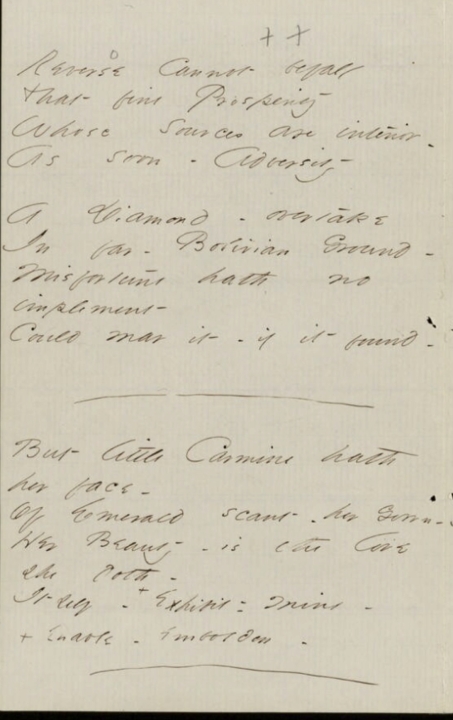 + +
Reverse Cannot befall
that fine Prosperity
Whose Sources are interior -
As soon - Adversity
A Diamond - overtake
In far - Bolivian Ground -
Misfortune hath no
implement
Could mar it - if it found -
But little Carmine hath
her face -
Of Emerald scant - her Gown -
Her Beauty - is the love
she doth -
Itself - +Exhibit - mine -
+ Enable - Embolden -